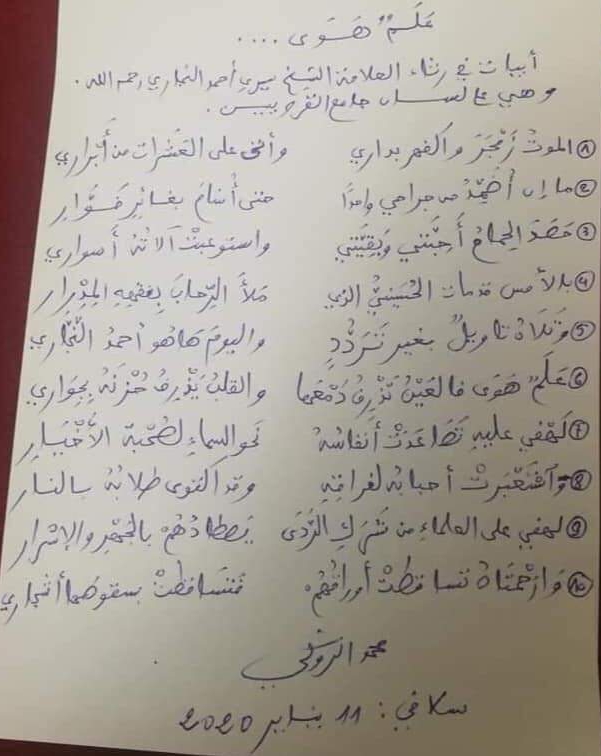 عَلَمٌ هَوَى ....
أبيات في رثاء العلامة الشيخ سيدي أحمد النجاري رحمه الله.
وهي على لسان جامع القرويين.
① الموتُ زَمْجَرَ واكفهر بداري وأنحى على العَشَرات من أَبْراري
② ما إن أُضَمِّدُ من جراحي واحدًا حتى أُسَامَ بغائرٍ فَوَّارِ
③ حَصَدَ الحِمامُ أَحِبَّتي وَبَقِيَّتي واستوعبتْ آلاتُهُ أَسواري
④ بالأمس قد مات الحُسَيْنِيُّ الذي مَلأَ الرِّحابَ بِفِقهِهِ المِدْرارِ
⑤ وَتَلَاهُ تاويلٌ بغير تَرَدُّدٍ واليومَ هَا هُو أحمدُ النَّجَّاري
⑥ عَلَمٌ هَوَى فالعَيْنُ تَذْرِفُ دَمْعَها والقلبُ يَذْرِفُ حُزْنَهُ بِجِوَاري
⑦ لَهْفي عليهِ تَصَاعَدَتْ أنفاسُهُ نحو السماءِ لِصُحْبَةِ الأَخْيَارِ
⑧ وَاسْتَعْبَرتْ أحبابُهُ لفراقِهِ وقد اكتوى طلابُهُ بالنارِ
⑨ لهفي على العلماءِ من شَرَكِ الرَّدَى يَصطادُهُمْ بالجَهْرِ والإِسْرارِ
⑩ وَارَحْمَتَاهُ تساقطتْ أوراقُهُمْ فَتَسَاقطتْ بسقوطها أشجاري
محمد الروكي
سلا في: 11 يناير 2020